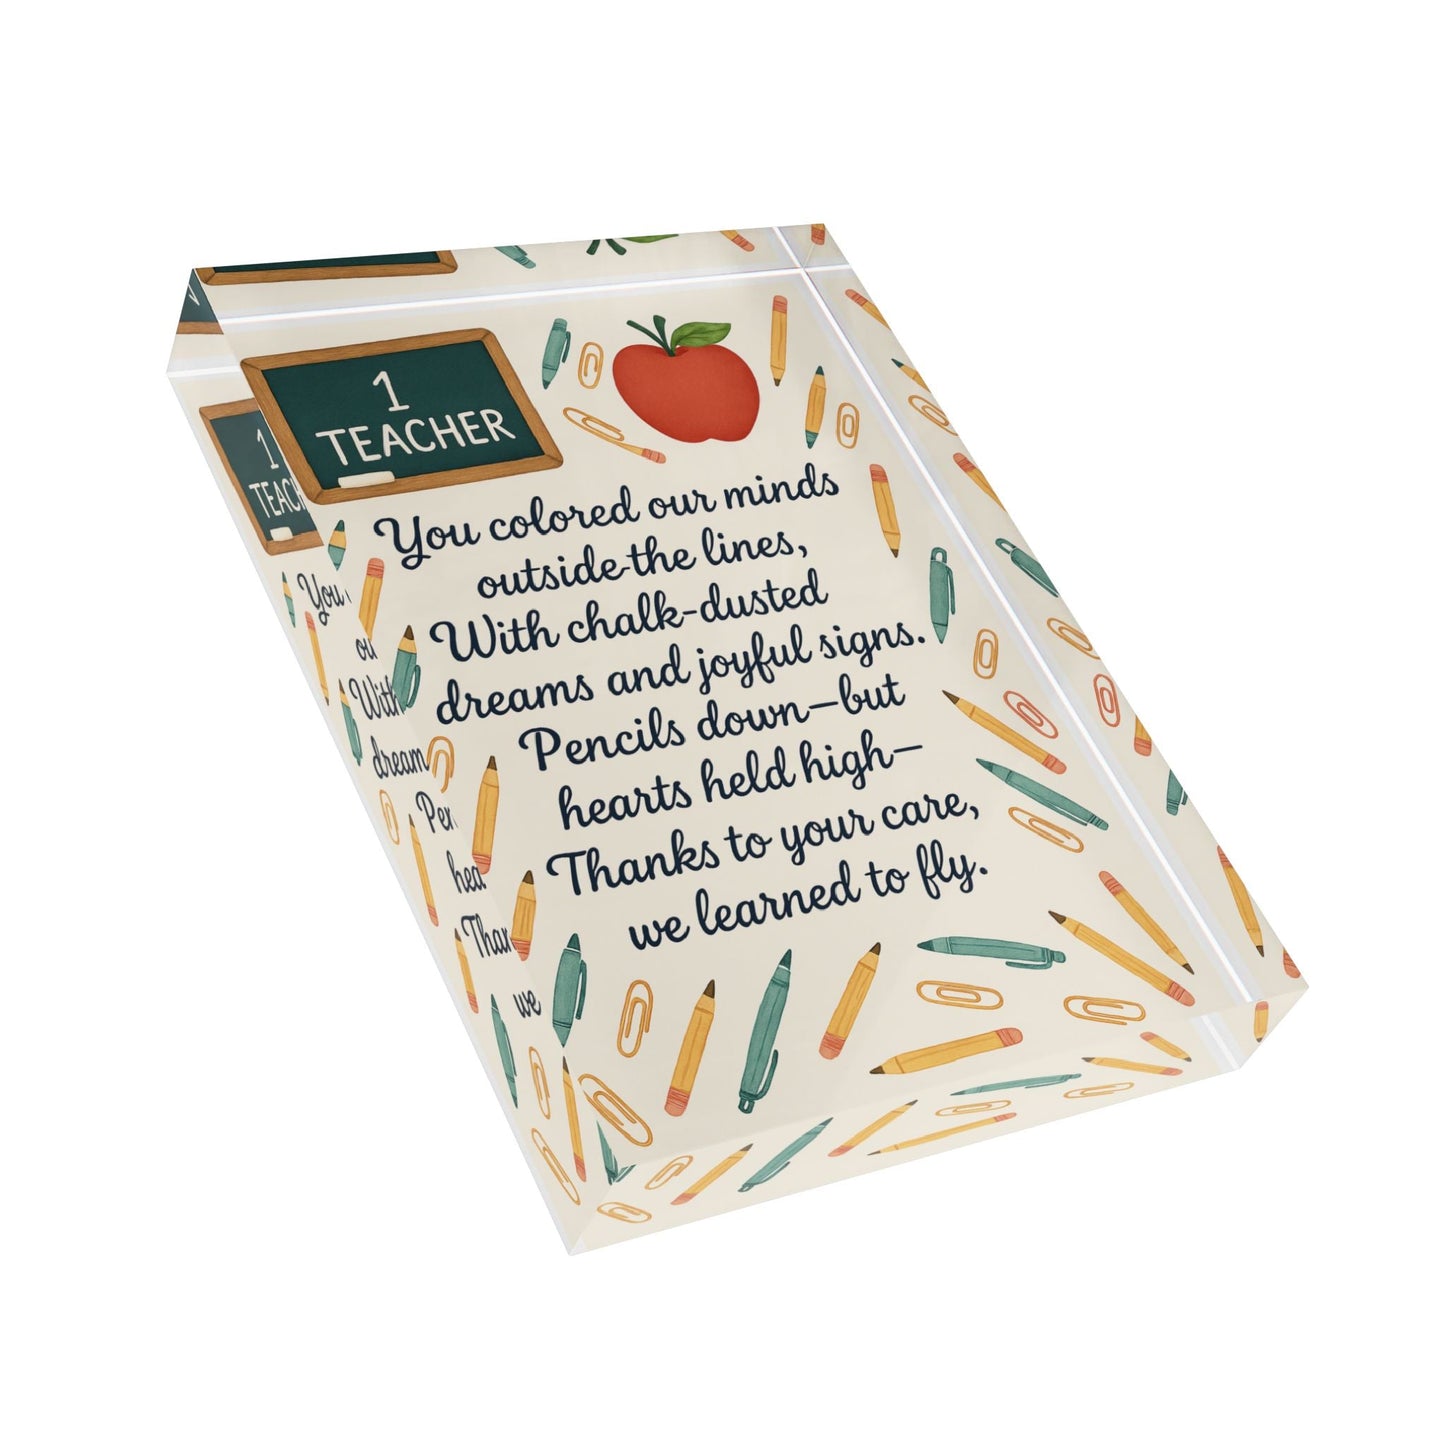 1
TEACHER
You colored our minds
outside the lines,
With chalk-dusted
dreams and joyful signs.
Pencils down—but
hearts held high—
Thanks to your care,
we learned to fly.